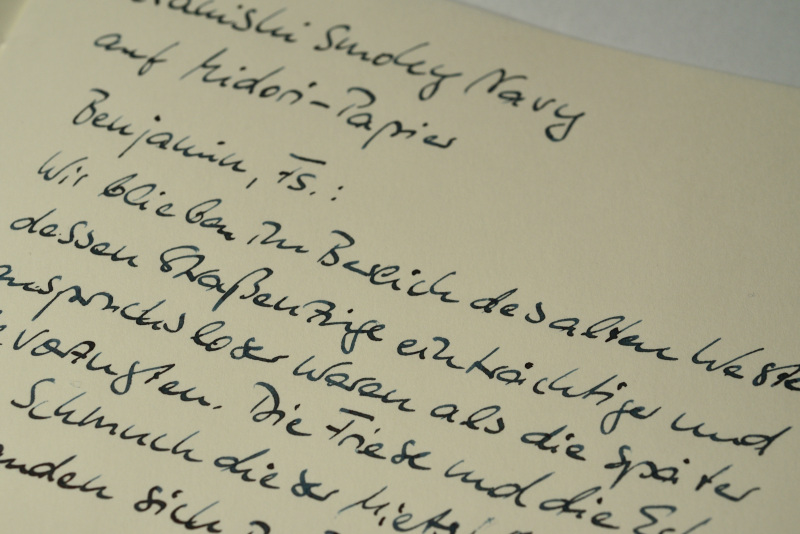 Smokey Navy
auf Midori-Papier
Benjamin, Fs.:
Wir blieben im Bereich des alten Weste
dessen Straßenzüge einträchtiger und
anspruchsloser waren als die später
bevorzugten. Die Friese und die
Schmuck dieser
sich